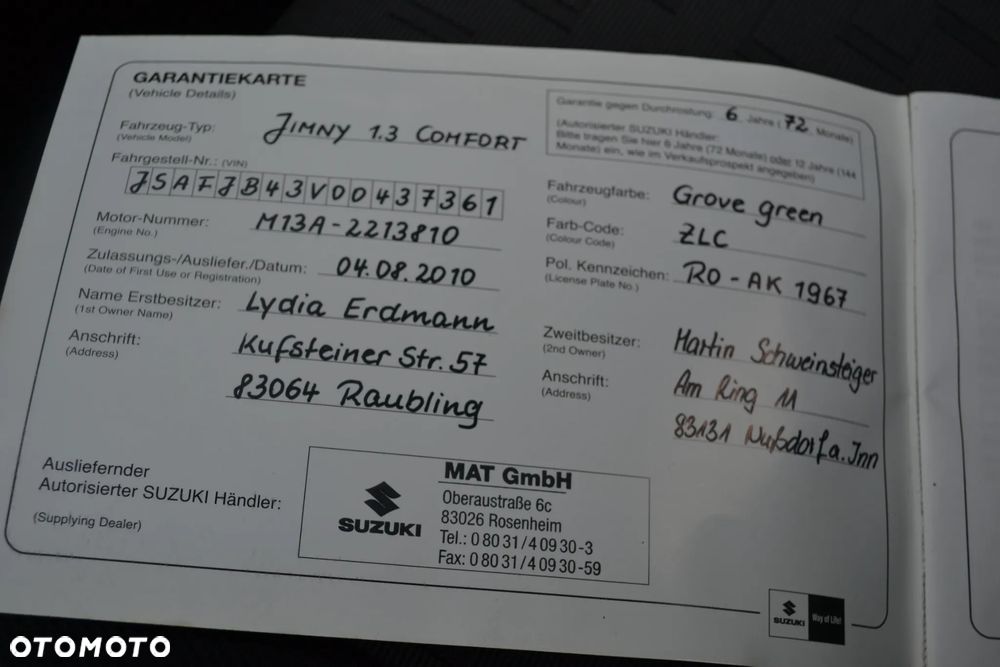 GARANTIEKARTE
(Vehicle Details)
Fahrzeug-Typ: JIMNY 1.3 COMFORT
(Vehicle Model)
Fahrgestell-Nr.: (VIN)
JSAFJB43V00437361
Motor-Nummer: M13A-2213810
(Engine No.)
Zulassungs-/Ausliefer./Datum: 04.08.2010
(Date of First Use or Registration)
Name Erstbesitzer: Lydia Erdmann
(1st Owner Name)
Anschrift: Kufsteiner Str. 57
(Address)
83064 Raubling
Garantie gegen Durchrostung: 6 Jahre (72 Monate)
(Autorisierter SUZUKI Händler:
Bitte tragen Sie hier 6 Jahre (72 Monate) oder 12 Jahre (144
Monate) ein, wie im Verkaufsprospekt angegeben)
Fahrzeugfarbe: Grove green
(Colour)
Farb-Code: ZLC
(Colour Code)
Pol. Kennzeichen: RO-AK 1967
(License Plate No.)
Zweitbesitzer: Martin Schweinsteiger
(2nd Owner)
Anschrift: Am Ring 11
(Address)
83131 Nußdorf a. Inn
Ausliefernder
Autorisierter SUZUKI Händler:
(Supplying Dealer)
SUZUKI
MAT GmbH
Oberaustraße 6c
83026 Rosenheim
Tel.: 0 80 31/4 09 30-3
Fax: 0 80 31/4 09 30-59
SUZUKI
Way of Life!
OTOMOTO